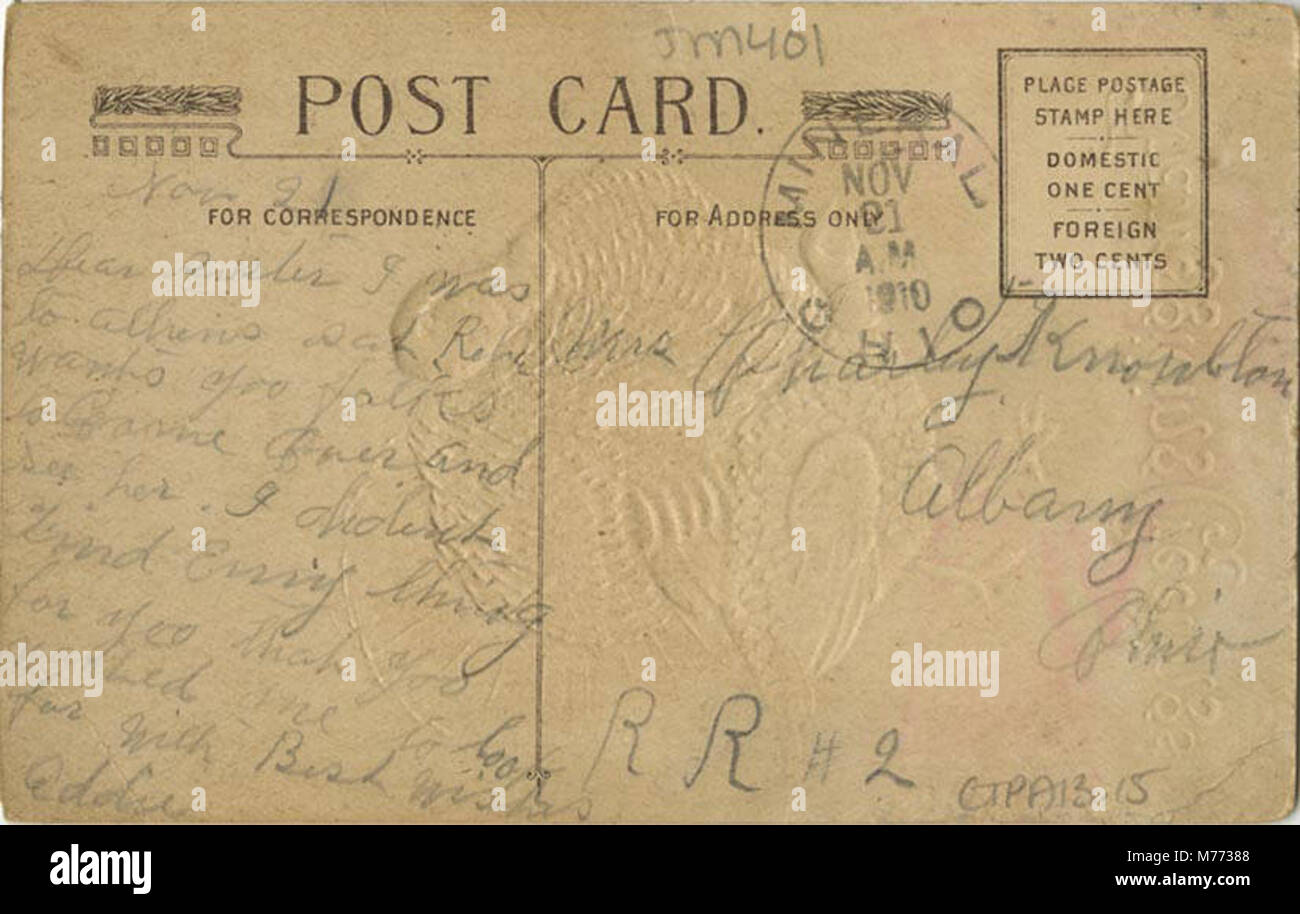 JM401
POST CARD.
PLACE POSTAGE
STAMP HERE
DOMESTIC
ONE CENT
FOREIGN
TWO CENTS
MINERAL
NOV
21
A.M
1910
OHIO
FOR CORRESPONDENCE
FOR ADDRESS ONLY
Nov 21
Dear sister I was
to Athens sat
wants yoo folks
to Come over and
see her. I dident
find Enny thing
for yoo that yoo
wished me to look
for With Best Wishes
Addie
Mrs Charley Knowlton
Albany
Ohio
R R # 2
CTPA13-15
alamy
a
alamy
Image ID: M77388
www.alamy.com